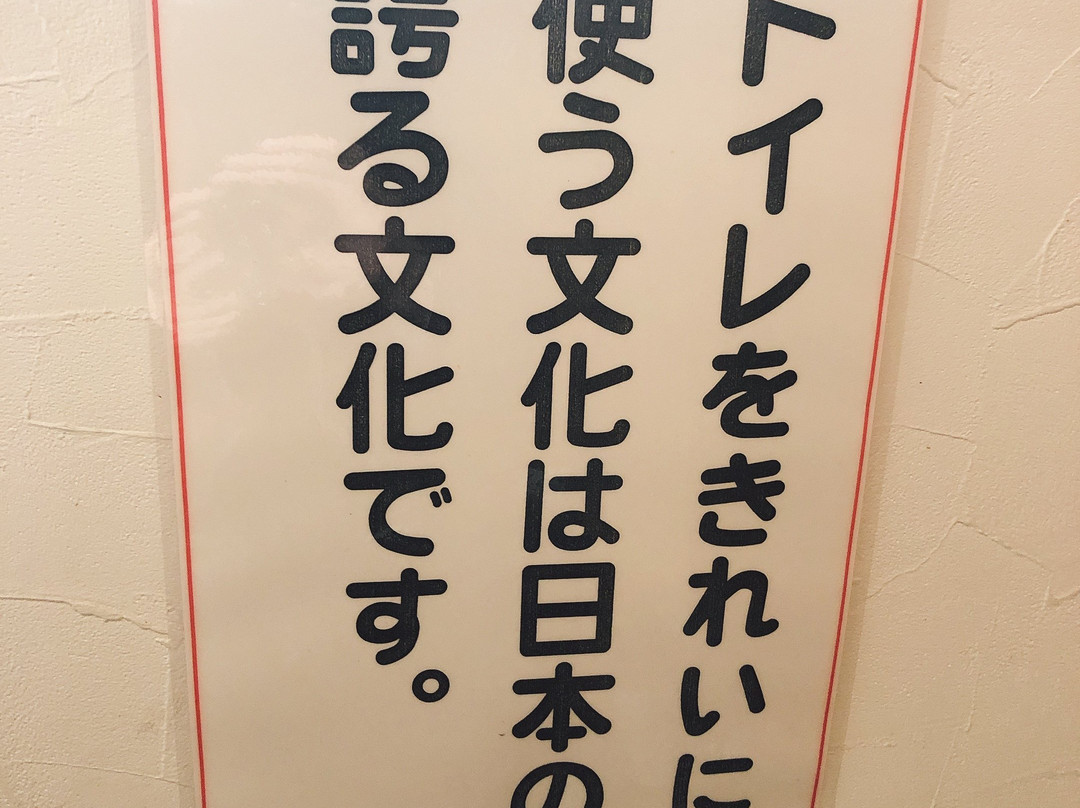 トイレをきれいに
使う文化は日本の
誇る文化です。